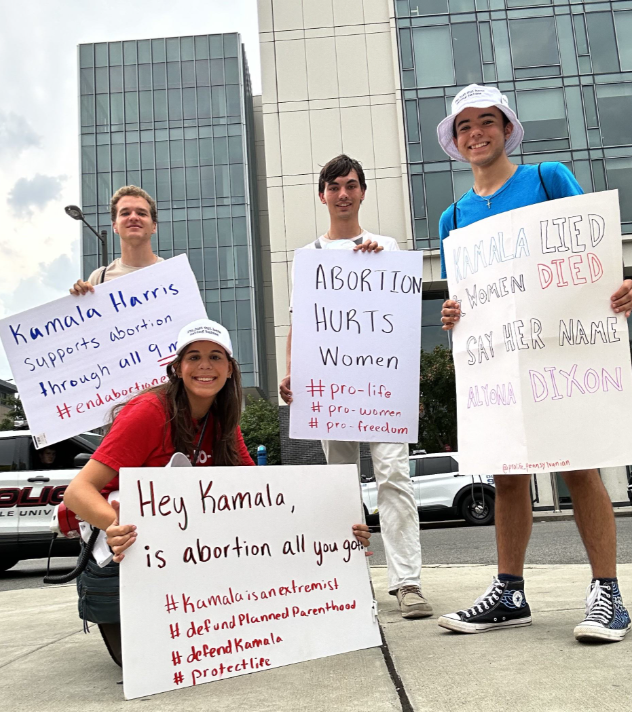 Kamala Harris
supports abortion
through all 9 m
#endabortion
ABORTION
HURTS
Women
#pro-life
#pro-women
#pro-freedom
KAMALA LIED
WOMEN DIED
SAY HER NAME
ALYONA DIXON
Hey Kamala,
is abortion all you got?
#Kamalaisanextremist
#defundPlannedParenthood
#defendKamala
#protectlife
LE UNIV